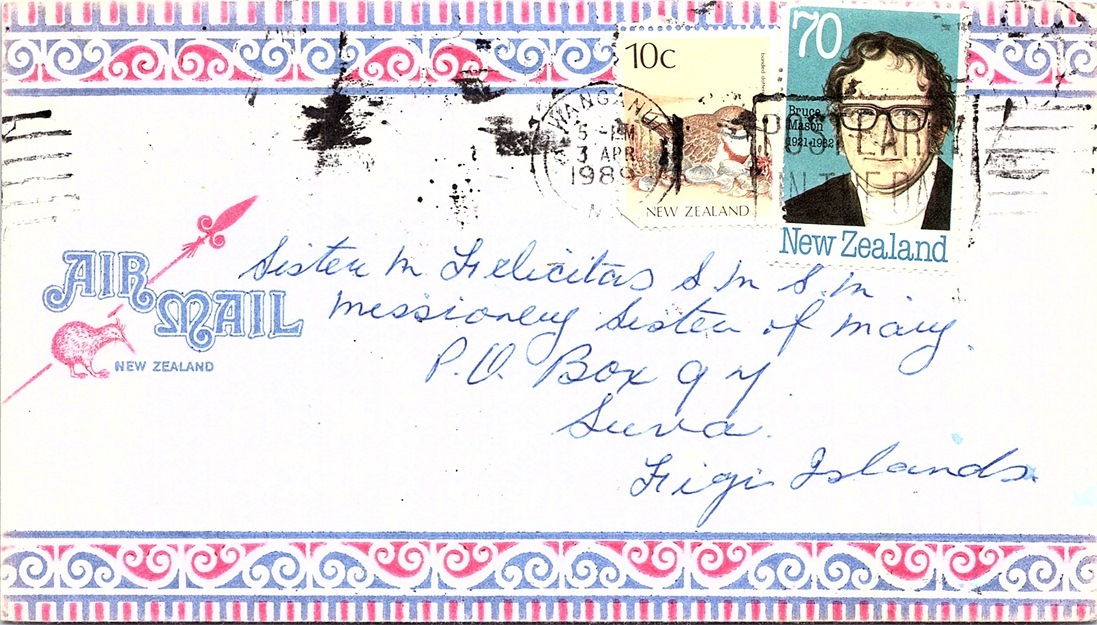 10c
banded dotterel
NEW ZEALAND
70
Bruce
Mason
1921-1982
New Zealand
WANGANUI
5 -PM
3 APR
1989
N.Z.
POSTCARD
AIR
MAIL
NEW ZEALAND
Sister M Felicitas S. M. S. M.
Missionery Sister of Mary.
P.O. Box 97
Suva.
Figi Islands.